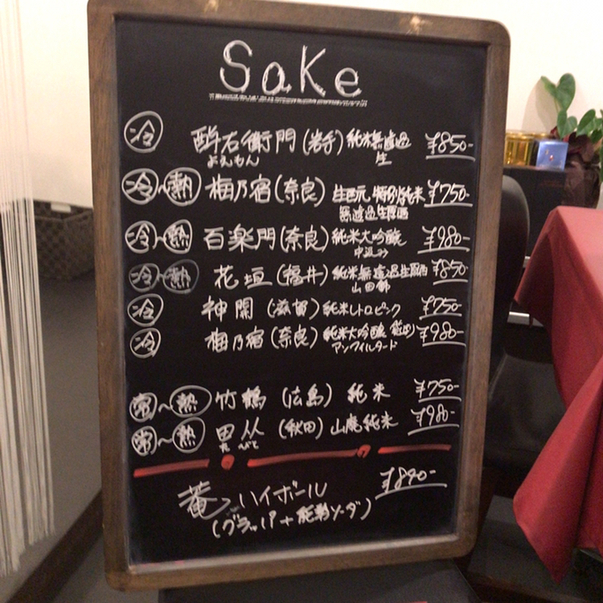 Sake
冷 酔右衛門 (岩手) 純米無濾過 ¥850-
よえもん 生
冷〜熱 梅乃宿 (奈良) 生酛 特別純米 ¥750-
無濾過生原酒
冷〜熱 百楽門 (奈良) 純米大吟醸 ¥980-
中汲み
冷〜熱 花垣 (福井) 純米無濾過生原酒 ¥850-
山田錦
冷 神開 (滋賀) 純米レトロピンク ¥750-
冷 梅乃宿 (奈良) 純米大吟醸 ¥980-
アンフィルタード
常〜熱 竹鶴 (広島) 純米 ¥750-
常〜熱 田从 (秋田) 山廃純米 ¥980-
たびと
菴つハイボール ¥890-
(グラッパ+ 能勢ソーダ)